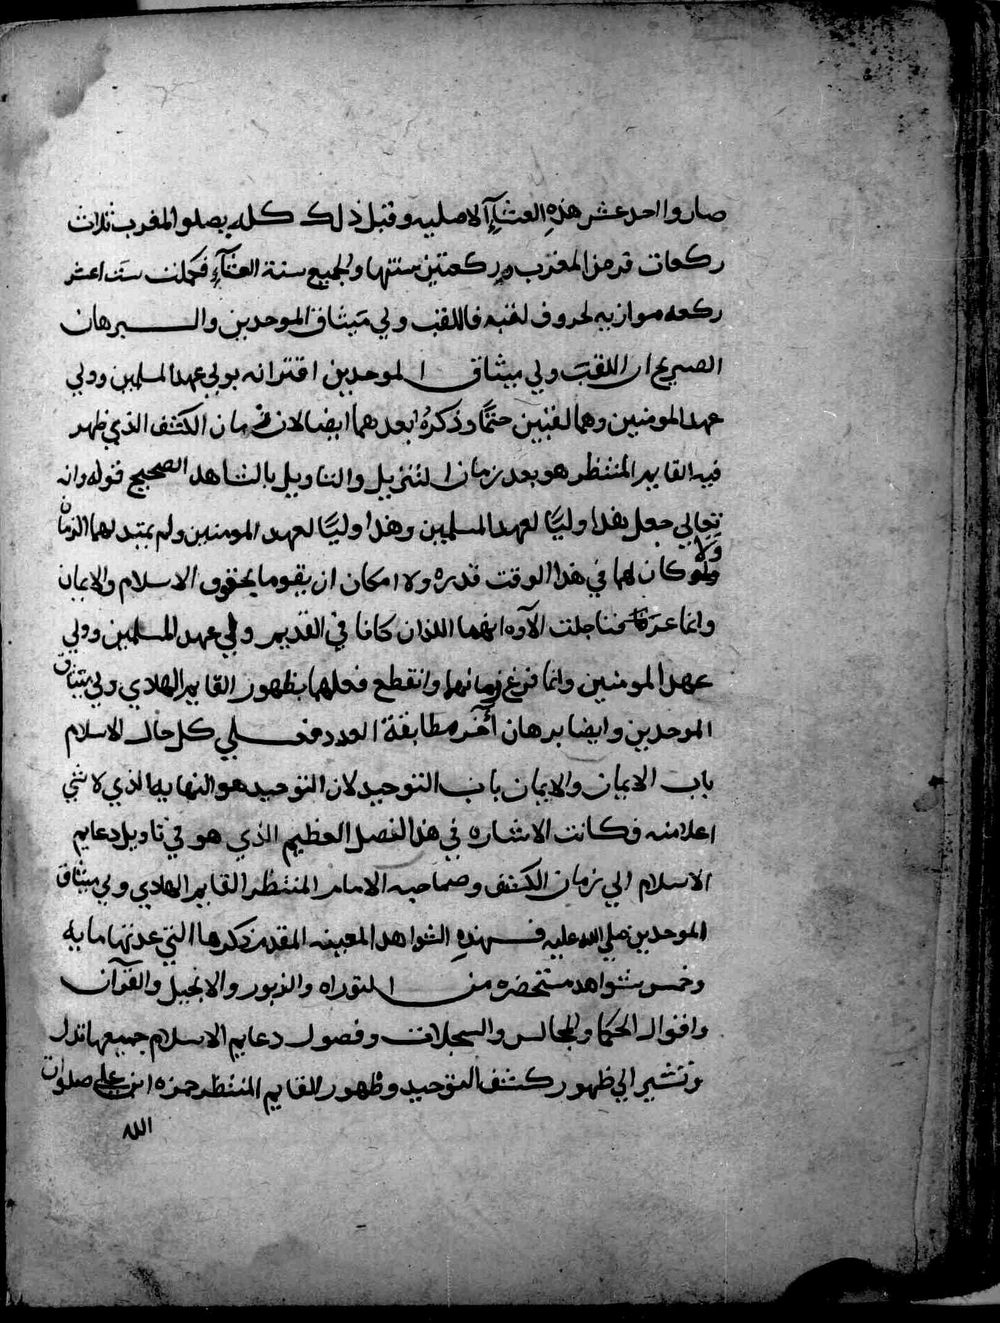 صاروا احد عشر هذه العشآء الاصليه وقبل ذلك كله يصلوا المغرب ثلاث
ركعات فرض المغرب وركعتين سنتها والجميع سنة العشآء فكملت ست اعشر
ركعه موازيه لحروف لقبه فاللقب ولي ميثاق الموحدين والبرهان
الصريح ان اللقب ولي ميثاق الموحدين اقترانه بولي عهد المسلمين وولي
عهد المومنين وهما لقبين حتمًا وذكره بعدهما ايضا لان زمان الكشف الذي ظهر
فيه القايم المنتظر هو بعد زمان التنزيل والتاويل بالشاهد الصحيح قوله وانه
تعالي جعل هذا وليًا لعهد المسلمين وهذا وليًا لعهد المومنين ولم يمتد لهما الزمان
ولا كان لهما في هذا الوقت قدره ولا امكان ان يقوما بحقوق الاسلام والايمان
وانما عرفنا جلت الآوه انهما اللذان كانا في القديم ولي عهد المسلمين وولي
عهد المومنين وانما فرغ زمانهما وانقطع فعلهما بظهور القايم الهادي ولي ميثاق
الموحدين وايضا برهان آخر مطابقة العدد فعلي كل حال الاسلام
باب الايمان والايمان باب التوحيد لان التوحيد هو النهايه الذي لا شي
اعلا منه فكانت الاشاره في هذا الفصل العظيم الذي هو في تاويل دعايم
الاسلام الي زمان الكشف وصاحبه الامام المنتظر القايم الهادي ولي ميثاق
الموحدين صلي الله عليه فهذه الشواهد المعينه المقدم ذكرها التي عدتها مايه
وخمس شواهد مستحضره من التوراه والزبور والانجيل والقرآن
واقوال الحكما والمجالس والسجلات وفصول دعايم الاسلام جميعها تدل
وتشير الي ظهور كشف التوحيد وظهور القايم المنتظر حمزه ابن علي صلوات
الله